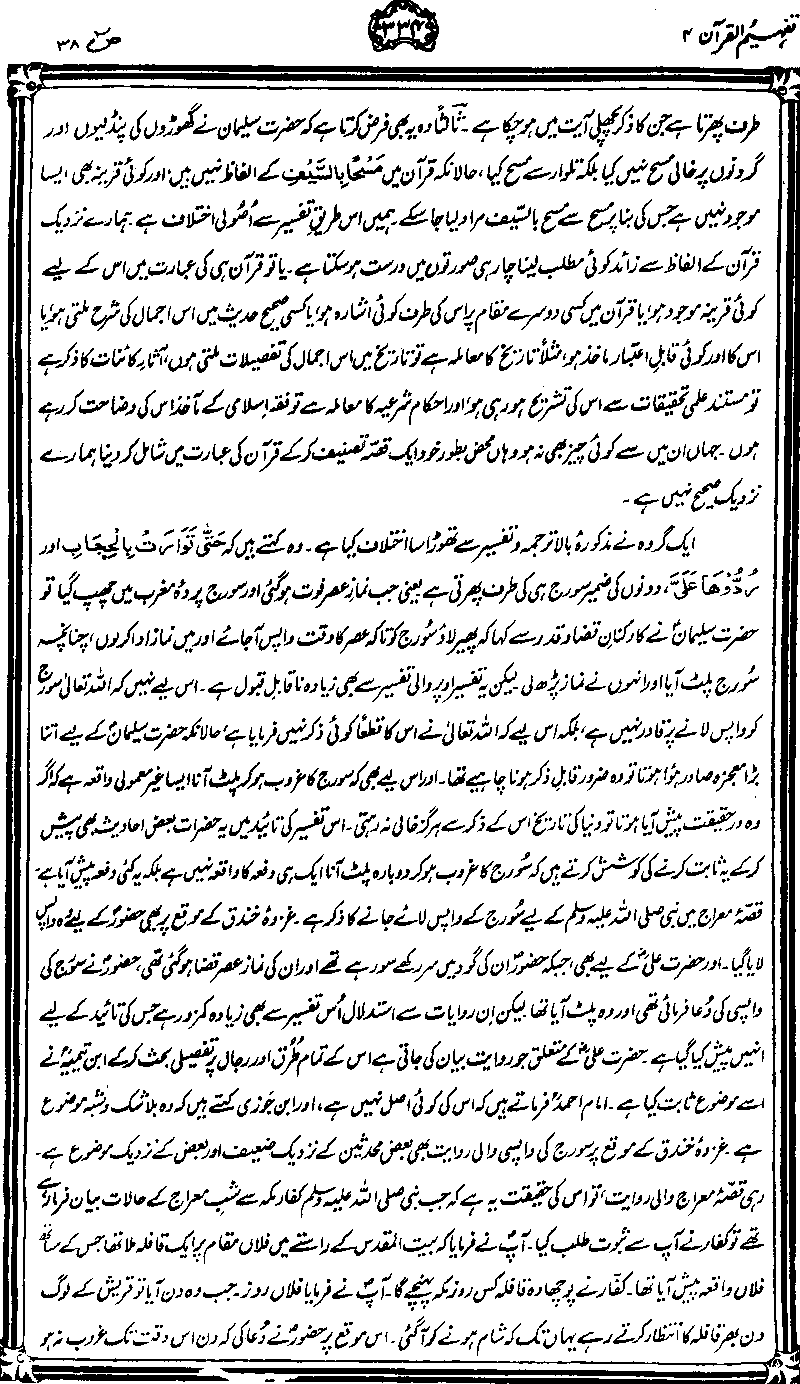 تفہیم القرآن ۴
۳۳۴
صٓ ۳۸
طرف پھرتا ہے جن کا ذکر پچھلی آیت میں ہو چکا ہے۔ ثالثاً وہ یہ بھی فرض کرتا ہے کہ حضرت سلیمان نے گھوڑوں کی پنڈلیوں اور
گردنوں پر خالی مسح نہیں کیا بلکہ تلوار سے مسح کیا، حالانکہ قرآن میں مَسْحًا بِالسَّیْفِ کے الفاظ نہیں ہیں، اور کوئی قرینہ بھی ایسا
موجود نہیں ہے جس کی بنا پر مسح سے مسح بالسّیف مراد لیا جا سکے۔ ہمیں اس طریقِ تفسیر سے اُصُولی اختلاف ہے۔ ہمارے نزدیک
قرآن کے الفاظ سے زائد کوئی مطلب لینا چار ہی صورتوں میں درست ہو سکتا ہے۔ یا تو قرآن ہی کی عبارت میں اس کے لیے
کوئی قرینہ موجود ہو، یا قرآن میں کسی دوسرے مقام پر اس کی طرف کوئی اشارہ ہو، یا کسی صحیح حدیث میں اس اجمال کی شرح ملتی ہو، یا
اس کا اور کوئی قابلِ اعتبار ماخذ ہو، مثلاً تاریخ کا معاملہ ہے تو تاریخ میں اس اجمال کی تفصیلات ملتی ہوں، آثارِ کائنات کا ذکر ہے
تو مستند علمی تحقیقات سے اس کی تشریح ہو رہی ہو، اور احکامِ شرعیہ کا معاملہ ہے تو فقہ اسلامی کے مآخذ اس کی وضاحت کر رہے
ہوں۔ جہاں ان میں سے کوئی چیز بھی نہ ہو وہاں محض بطور خود ایک قصّہ تصنیف کر کے قرآن کی عبارت میں شامل کر دینا ہمارے
نزدیک صحیح نہیں ہے۔
ایک گروہ نے مذکورۂ بالا ترجمہ و تفسیر سے تھوڑا سا اختلاف کیا ہے۔ وہ کہتے ہیں کہ حَتّٰی تَوَارَتْ بِالْحِجَابِ اور
رُدُّوْھَا عَلَیَّ، دونوں کی ضمیر سورج ہی کی طرف پھرتی ہے یعنی جب نمازِ عصر فوت ہو گئی اور سورج پردۂ مغرب میں چھپ گیا تو
حضرت سلیمانؑ نے کارکنانِ قضا و قدر سے کہا کہ پھیر لاؤ سُورج کو تاکہ عصر کا وقت واپس آ جائے اور میں نماز ادا کر لوں، چنانچہ
سُورج پلٹ آیا اور انہوں نے نماز پڑھ لی لیکن یہ تفسیر اوپر والی تفسیر سے بھی زیادہ ناقابلِ قبول ہے۔ اس لیے نہیں کہ اللہ تعالیٰ سورج
کو واپس لانے پر قادر نہیں ہے، بلکہ اس لیے کہ اللہ تعالیٰ نے اس کا قطعاً کوئی ذکر نہیں فرمایا ہے، حالانکہ حضرت سلیمانؑ کے لیے اتنا
بڑا معجزہ صادر ہوا ہوتا تو وہ ضرور قابلِ ذکر ہونا چاہیے تھا۔ اور اس لیے بھی کہ سورج کا غروب ہو کر پلٹ آنا ایسا غیر معمولی واقعہ ہے کہ اگر
وہ در حقیقت پیش آیا ہوتا تو دنیا کی تاریخ اس کے ذکر سے ہرگز خالی نہ رہتی۔ اس تفسیر کی تائید میں یہ حضرات بعض احادیث بھی پیش
کر کے یہ ثابت کرنے کی کوشش کرتے ہیں کہ سُورج کا غروب ہو کر دوبارہ پلٹ آنا ایک ہی دفعہ کا واقعہ نہیں ہے بلکہ یہ کئی دفعہ پیش آیا ہے۔
قصّۂ معراج میں نبی صلی اللہ علیہ وسلم کے لیے سُورج کے واپس لائے جانے کا ذکر ہے۔ غزوۂ خندق کے موقع پر بھی حضورؐ کے لیے وہ واپس
لایا گیا۔ اور حضرت علیؓ کے لیے بھی، جبکہ حضورؐ ان کی گود میں سر رکھے سو رہے تھے اور ان کی نمازِ عصر قضا ہو گئی تھی، حضورؐ نے سورج کی
واپسی کی دُعا فرمائی تھی اور وہ پلٹ آیا تھا لیکن اِن روایات سے استدلال اُس تفسیر سے بھی زیادہ کمزور ہے جس کی تائید کے لیے
انہیں پیش کیا گیا ہے۔ حضرت علیؓ کے متعلق جو روایت بیان کی جاتی ہے اس کے تمام طُرُق اور رجال پر تفصیلی بحث کر کے ابن تیمیہؒ نے
اسے موضوع ثابت کیا ہے۔ امام احمدؒ فرماتے ہیں کہ اس کی کوئی اصل نہیں ہے، اور ابن جَوزی کہتے ہیں کہ وہ بلا شک و شبہ موضوع
ہے۔ غزوۂ خندق کے موقع پر سورج کی واپسی والی روایت بھی بعض محدثین کے نزدیک ضعیف اور بعض کے نزدیک موضوع ہے۔
رہی قصّۂ معراج والی روایت، تو اس کی حقیقت یہ ہے کہ جب نبی صلی اللہ علیہ وسلم کفار مکہ سے شبِ معراج کے حالات بیان فرما رہے
تھے تو کفار نے آپ سے ثبوت طلب کیا۔ آپؐ نے فرمایا کہ بیت المقدس کے راستے میں فلاں مقام پر ایک قافلہ ملا تھا جس کے ساتھ
فلاں واقعہ پیش آیا تھا۔ کفّار نے پوچھا وہ قافلہ کس روز مکہ پہنچے گا۔ آپؐ نے فرمایا فلاں روز۔ جب وہ دن آیا تو قریش کے لوگ
دن بھر قافلہ کا انتظار کرتے رہے یہاں تک کہ شام ہونے کو آ گئی۔ اس موقع پر حضورؐ نے دُعا کی کہ دن اس وقت تک غروب نہ ہو